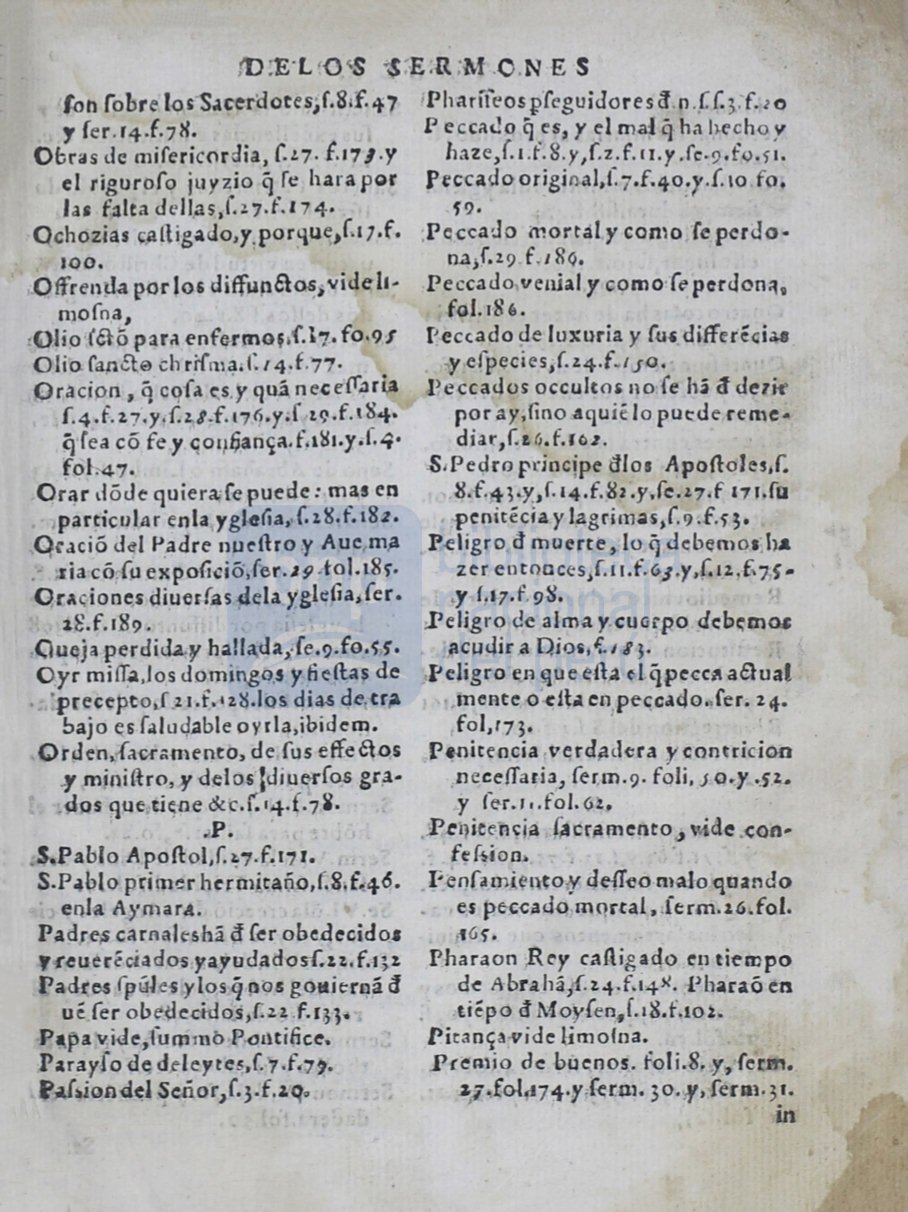 DELOS SERMONES
ſon ſobre los Sacerdotes, ſ.8.f.47
y ſer.14.f.78.
Obras de miſericordia, ſ.27. f.173.y
el riguroſo juyzio q̃ ſe hara por
las falta dellas,ſ.27.f.174.
Ochozias caſtigado,y porque,ſ.17.f.
100.
Offrenda por los diffunctos, vide li-
moſna,
Olio ſctõ para enfermos.ſ.17.fo.95
Olio ſancto chriſma.ſ.14.f.77.
Oracion, q̃ coſa es y quã neceſſaria
ſ.4.f.27.y.ſ.28.f.176.y.ſ 29.f.184.
q̃ ſea cõ fe y confiança.f.181.y.ſ.4.
fol.47.
Orar dõde quiera ſe puede: mas en
particular enla ygleſia, ſ.28.f.182.
Oraciõ del Padre nueſtro y Aue ma
ria cõ ſu expoſiciõ,ſer.29 fol.185.
Oraciones diuerſas dela ygleſia, ſer.
28.f.189.
Oueja perdida y hallada, ſe.9.fo.55.
Oyr miſſa,los domingos y fieſtas de
precepto,ſ 21.f.128.los dias de tra
bajo es ſaludable oyrla,ibidem.
Orden, ſacramento, de ſus effectos
y miniſtro, y delos diuerſos gra-
dos que tiene &c.ſ.14.f.78.
.P.
S.Pablo Apoſtol,ſ.27.f.171.
S.Pablo primer hermitaño,ſ.8.f.46.
enla Aymara.
Padres carnales hã đ ſer obedecidos
y reuerẽciados y ayudados ſ.22.f.132
Padres ſpũles y los q̃ nos gouiernã đ
uẽ ſer obedecidos,ſ.22 f.133.
Papa vide,ſummo Pontifice.
Parayſo de deleytes,ſ.7.f.79.
Paſsion del Señor,ſ.3.f.20.
Phariſeos pſeguidores đ n.ſ.ſ.3.f.20
Peccado q̃ es, y el mal q̃ ha hecho y
haze,ſ.1.f.8.y,ſ.2.f.11.y.ſe.9.fo.51.
Peccado original,ſ.7.f.40.y.ſ.10 fo.
59.
Peccado mortal y como ſe perdo-
na,ſ.29 f.186.
Peccado venial y como ſe perdona,
fol.186.
Peccado de luxuria y ſus differẽcias
y eſpecies,ſ.24.f.150.
Peccados occultos no ſe hã đ dezir
por ay,ſino aquiẽ lo puede reme-
diar,ſ.26.f.162.
S.Pedro principe đlos Apoſtoles,ſ.
8.f.43.y,ſ.14.f.82.y,ſe.27.f 171.ſu
penitẽcia y lagrimas,ſ.9.f.53.
Peligro đ muerte, lo q̃ debemos ha
zer entonces,ſ.11.f.63.y,ſ.12.f.75.
y ſ.17.f.98.
Peligro de alma y cuerpo debemos
acudir a Dios,f.183.
Peligro en que eſta el q̃ pecca actual
mente o eſta en peccado. ſer. 24.
fol,173.
Penitencia verdadera y contricion
neceſſaria, ſerm.9. foli, 50.y .52.
y ſer.11.fol.62.
Penitencia ſacramento, vide con-
feſsion.
Penſamiento y deſſeo malo quando
es peccado mortal, ſerm.26.fol.
165.
Pharaon Rey caſtigado en tiempo
de Abrahã,ſ.24.f.148. Pharaõ en
tiẽpo đ Moyſen,ſ.18.f.102.
Pitança vide limoſna.
Premio de buenos. foli.8. y, ſerm.
27.fol.174.y ſerm. 30. y, ſerm.31.
in